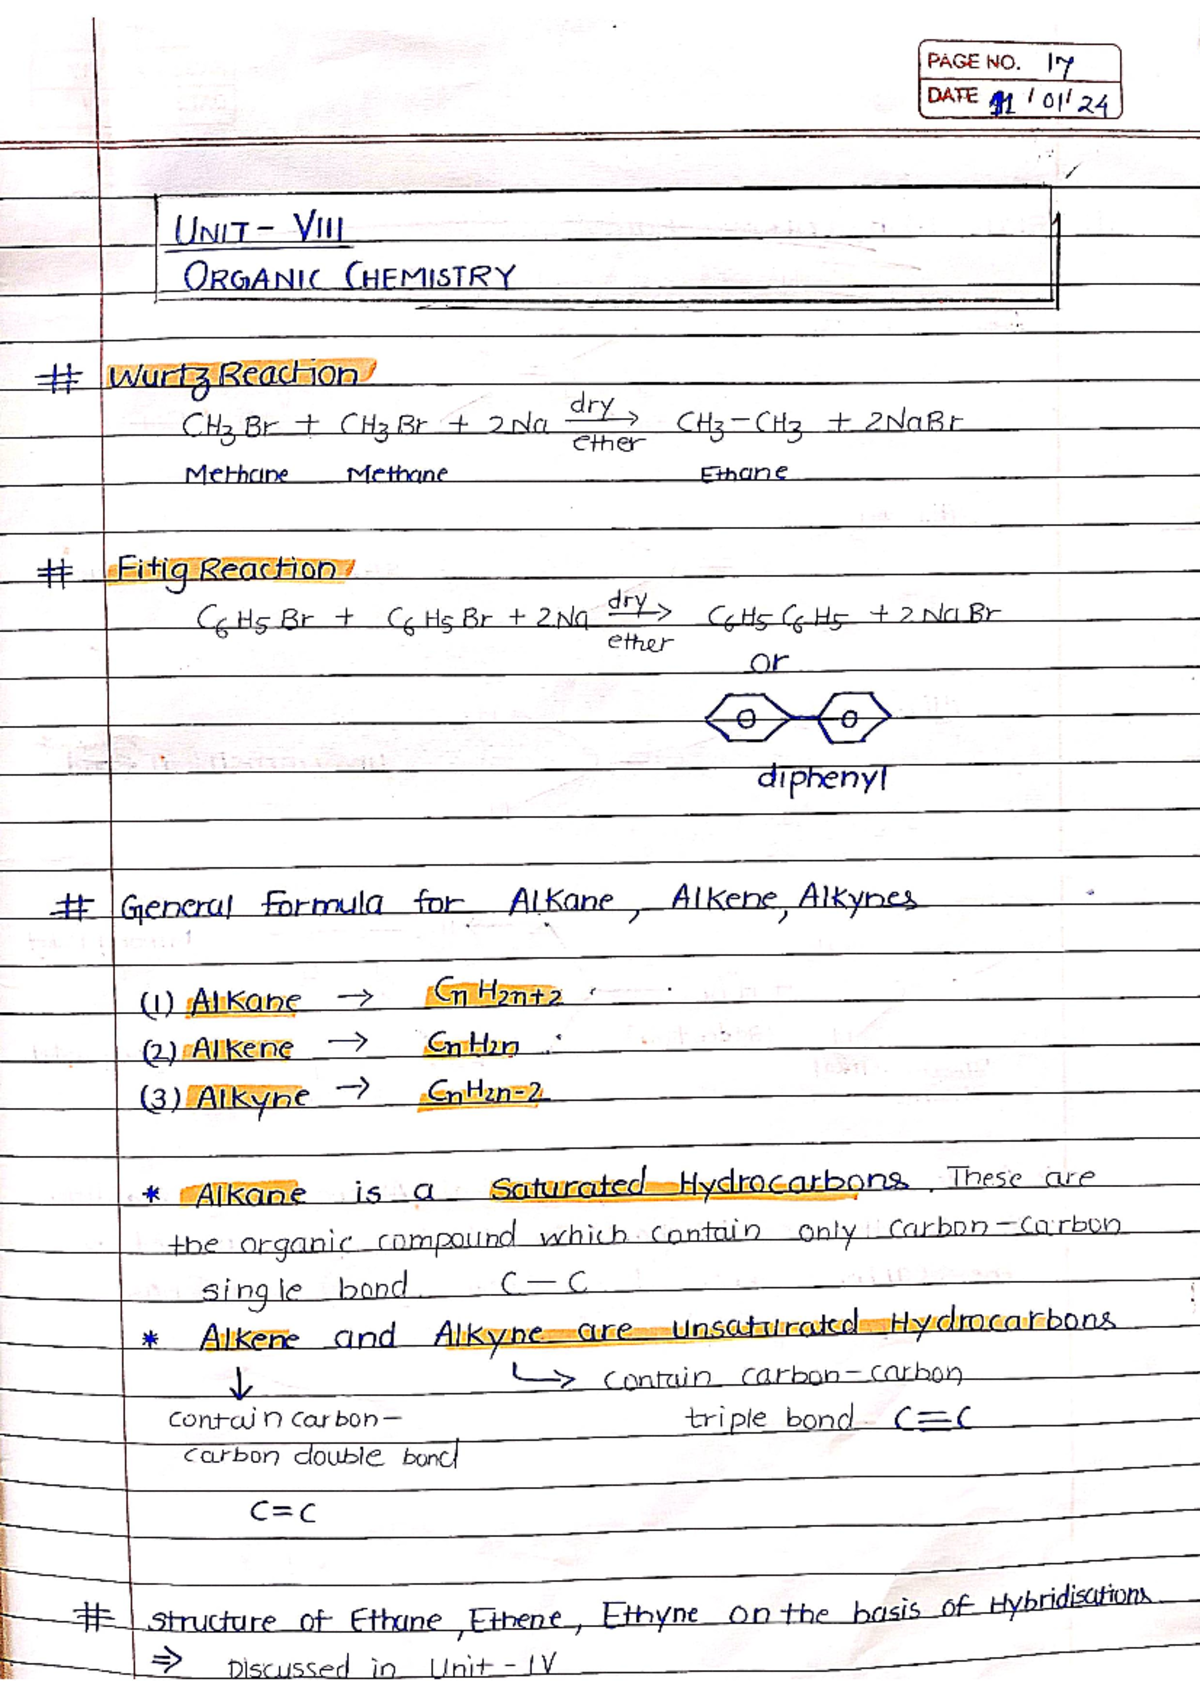 PAGE NO. 17
DATE 11 / 01 / 24
UNIT - VIII
ORGANIC CHEMISTRY
# Wurtz Reaction
CH3 Br + CH3 Br + 2Na dry ether → CH3-CH3 + 2NaBr
Methane Methane Ethane
# Fitig Reaction
C6H5 Br + C6H5 Br + 2Na dry ether → C6H5 C6H5 + 2NaBr
or
diphenyl
# General formula for Alkane, Alkene, Alkynes
(1) Alkane → CnH2n+2
(2) Alkene → CnH2n
(3) Alkyne → CnH2n-2
* Alkane is a Saturated Hydrocarbons. These are
the organic compound which contain only carbon-carbon
single bond C-C
* Alkene and Alkyne are Unsaturated Hydrocarbons
↓ ↳ contain carbon-carbon
contain carbon- triple bond C≡C
carbon double bond
C=C
# structure of Ethane, Ethene, Ethyne on the basis of Hybridisations
⇒ Discussed in Unit - IV